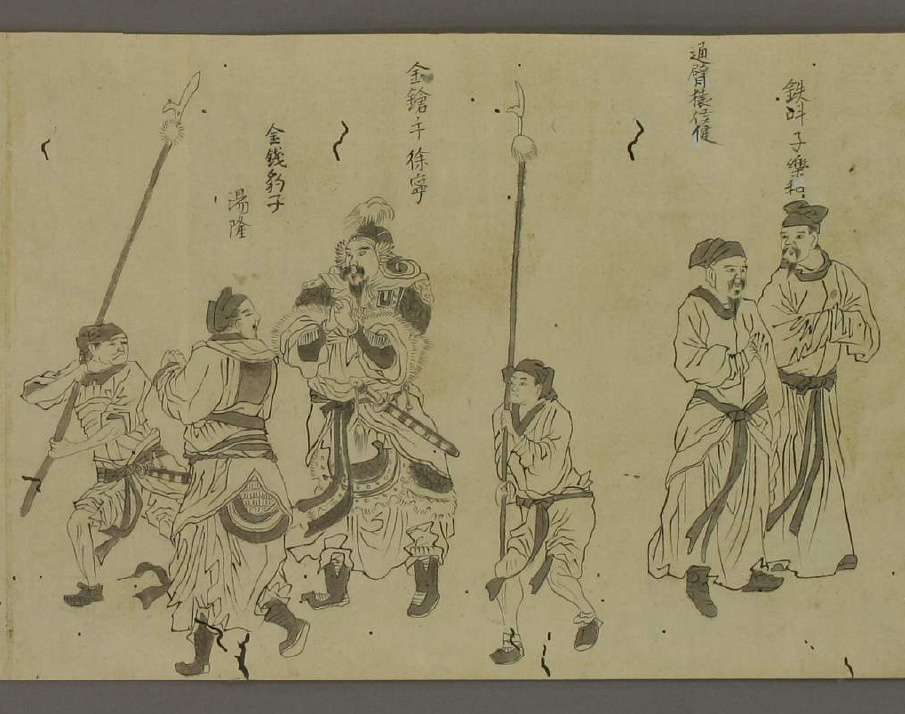 鉄叫子樂和
通臂猿侯健
金鎗手徐寧
金錢豹子
湯隆